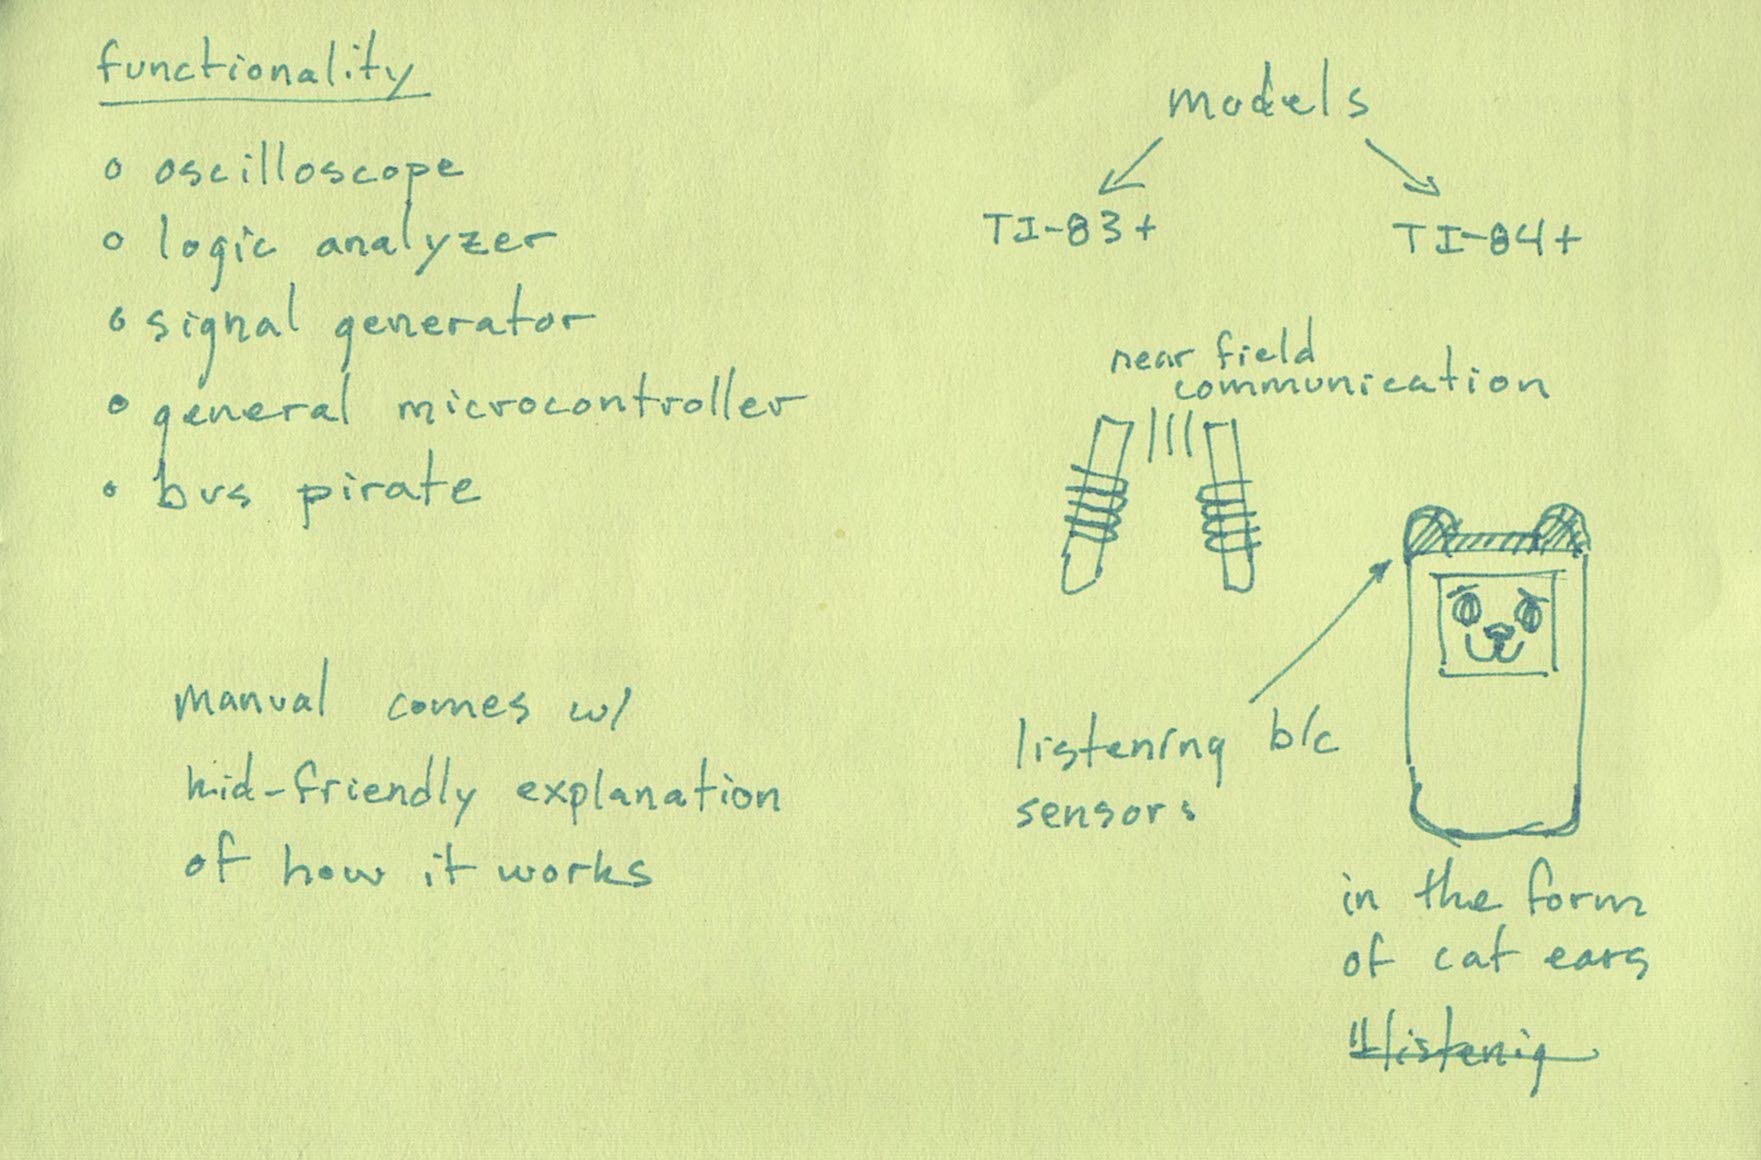 functionality
o oscilloscope
o logic analyzer
o signal generator
o general microcontroller
o bus pirate
manual comes w/
kid-friendly explanation
of how it works
models
TI-83+
TI-84+
near field
communication
listening b/c
sensors
in the form
of cat ears
"listenig